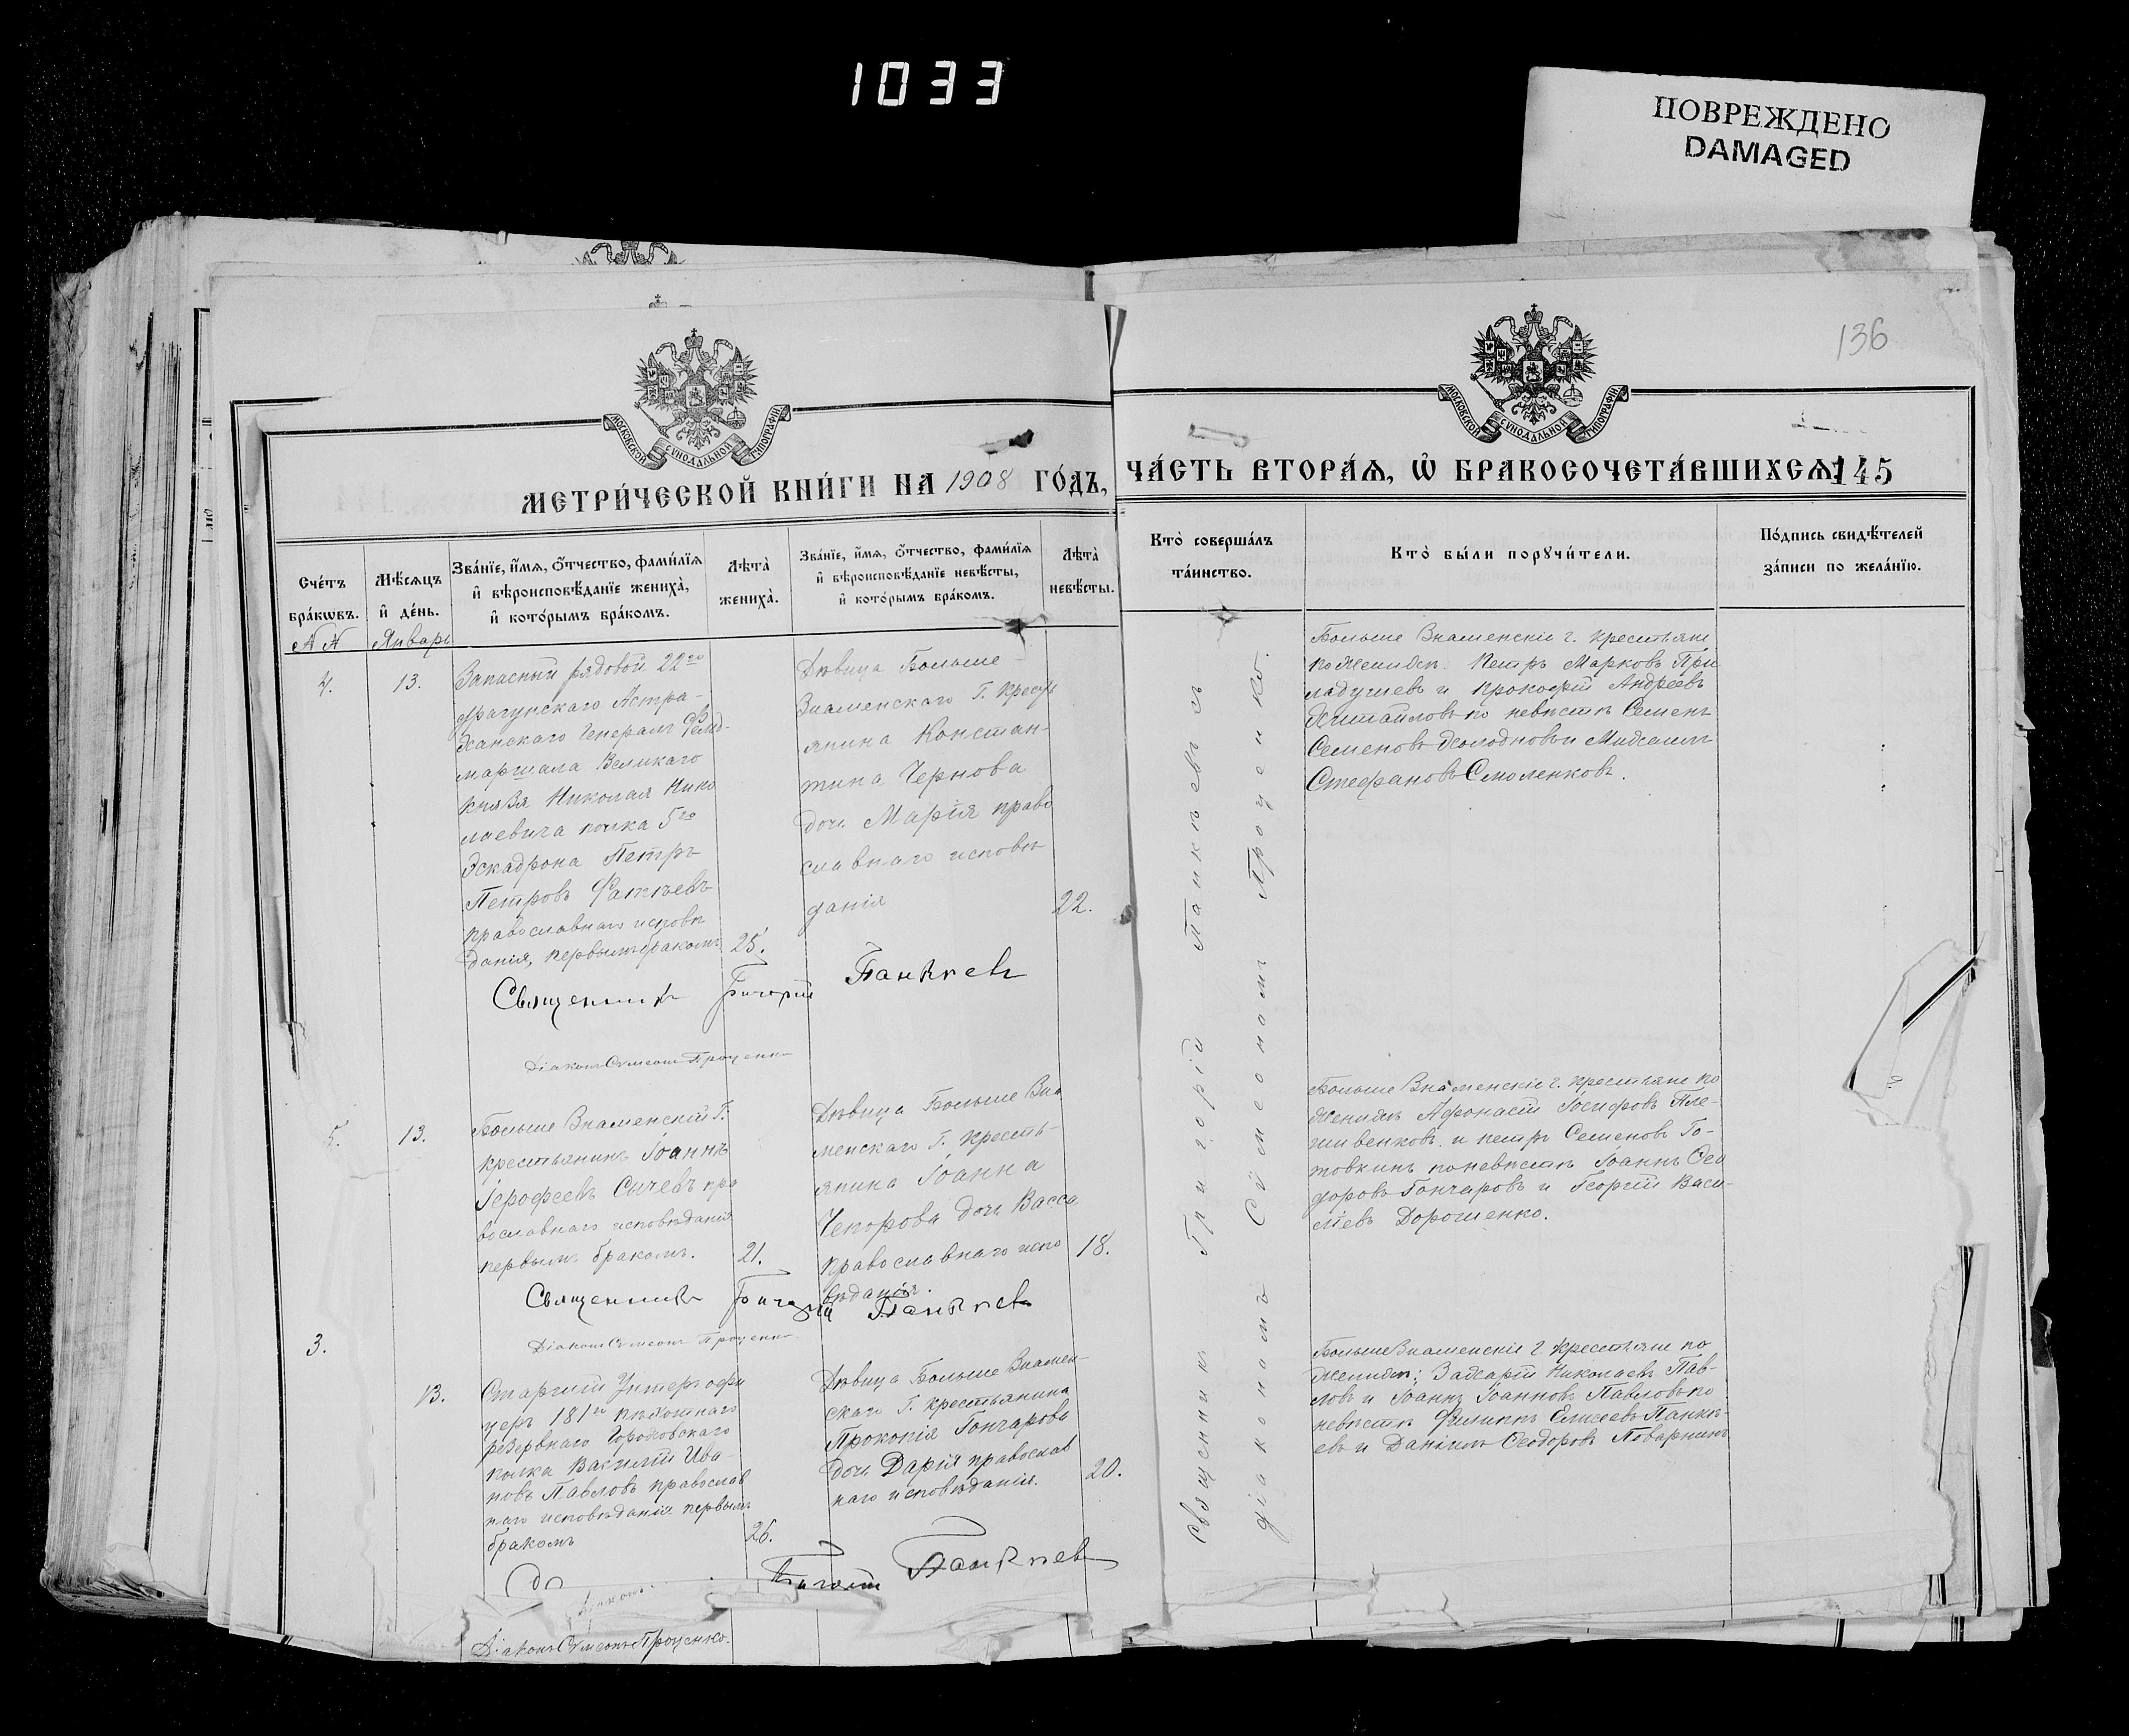 1033
ПОВРЕЖДЕНО
DAMAGED
136
МОСКОВСКОЙ СУНОДАЛЬНОЙ ТИПОГРАФІИ
МОСКОВСКОЙ СУНОДАЛЬНОЙ ТИПОГРАФІИ
МЕТРИ́ЧЕСКОЙ КНИ́ГИ НА 1908 ГО́ДЪ,
ЧА́СТЬ ВТОРА́Ѧ, Ѽ БРАКОСОЧЕТА́ВШИХСѦ
145
Сче́тъ бра́кѡвъ.
Мѣ́сѧцъ и҆ де́нь.
Зва́нїе, и҆́мѧ, ѻ҆́тчество, фами́лїѧ
и҆ вѣроисповѣ́данїе жениха̀,
и҆ кото́рымъ бра́комъ.
Лѣта̀ жениха̀.
Зва́нїе, и҆́мѧ, ѻ҆́тчество, фами́лїѧ
и҆ вѣроисповѣ́данїе невѣ́сты,
и҆ кото́рымъ бра́комъ.
Лѣта̀ невѣ́сты.
Кто̀ соверша́лъ
та́инство.
Кто̀ бы́ли порꙋчи́тели.
По́дпись свидѣ́телей
за́писи по жела́нїю.
№№
Январь
4.
13.
Запасный рядовой 22го
драгунскаго Астра-
ханскаго Генералъ Фельд-
маршала Великаго
князя Николая Нико
лаевича полка 5го
Эскадрона Петръ
Петровъ Фатѣевъ
православнаго исповѣ
данія, первымъ бракомъ
25.
Дѣвица Больше-
Знаменскаго Г. кресть
янина Констан-
тина Чернова
дочь Марія право
славнаго исповѣ
данія
22.
Больше Знаменскіе г. крестьяне
по женихѣ: Петръ Марковъ При
ладушевъ и Прокофій Андреевъ
по невѣстѣ Семенъ
Семеновъ Холодновъ и Михаилъ
Стефановъ Смоленковъ.
Священникъ Григорій Панкѣевъ
Діаконъ Сѵмеонъ Проценко
5.
13.
Больше Знаменскій Г.
крестьянинъ Іоаннъ
Іерофеевъ Сычевъ пра
вославнаго исповѣданія
первымъ бракомъ.
21.
Дѣвица Больше Зна
менскаго Г. кресть-
янина Іоанна
Чепорова дочь Васса
православнаго испо
вѣданія.
18.
Больше Знаменскіе г. крестьяне по
женихѣ Афонасій Іосифовъ Пле-
шивенковъ и петръ Семеновъ Го-
товкинъ по невѣстѣ Іоаннъ Ѳео
доровъ Гончаровъ и Георгій Васи-
ліевъ Дорошенко.
Священникъ Григорій Панкѣевъ
Діаконъ Сѵмеонъ Проценко
3.
13.
Старшій Унтеръ офи
церъ 181го пѣхотнаго
резервнаго
полка Василій Ива-
новъ Павловъ православ
наго исповѣданія первымъ
бракомъ
26.
Дѣвица Больше Знамен-
скаго Г. крестьянина
Прокопія Гончарова
дочь Дарія православ
наго исповѣданія.
20.
Больше Знаменскіе г. крестьяне по
женихѣ: Захарій Николаевъ Пав-
ловъ и Іоаннъ Іоанновъ Павловъ по
невѣстѣ Филиппъ Елисеевъ Панкѣ-
евъ и Даніилъ Ѳеодоровъ Поварнинъ
Григорій Панкѣевъ
Діаконъ Сѵмеонъ Проценко.
Священникъ Григорій Панкѣевъ съ
діакономъ Сѵмеономъ Проценко.